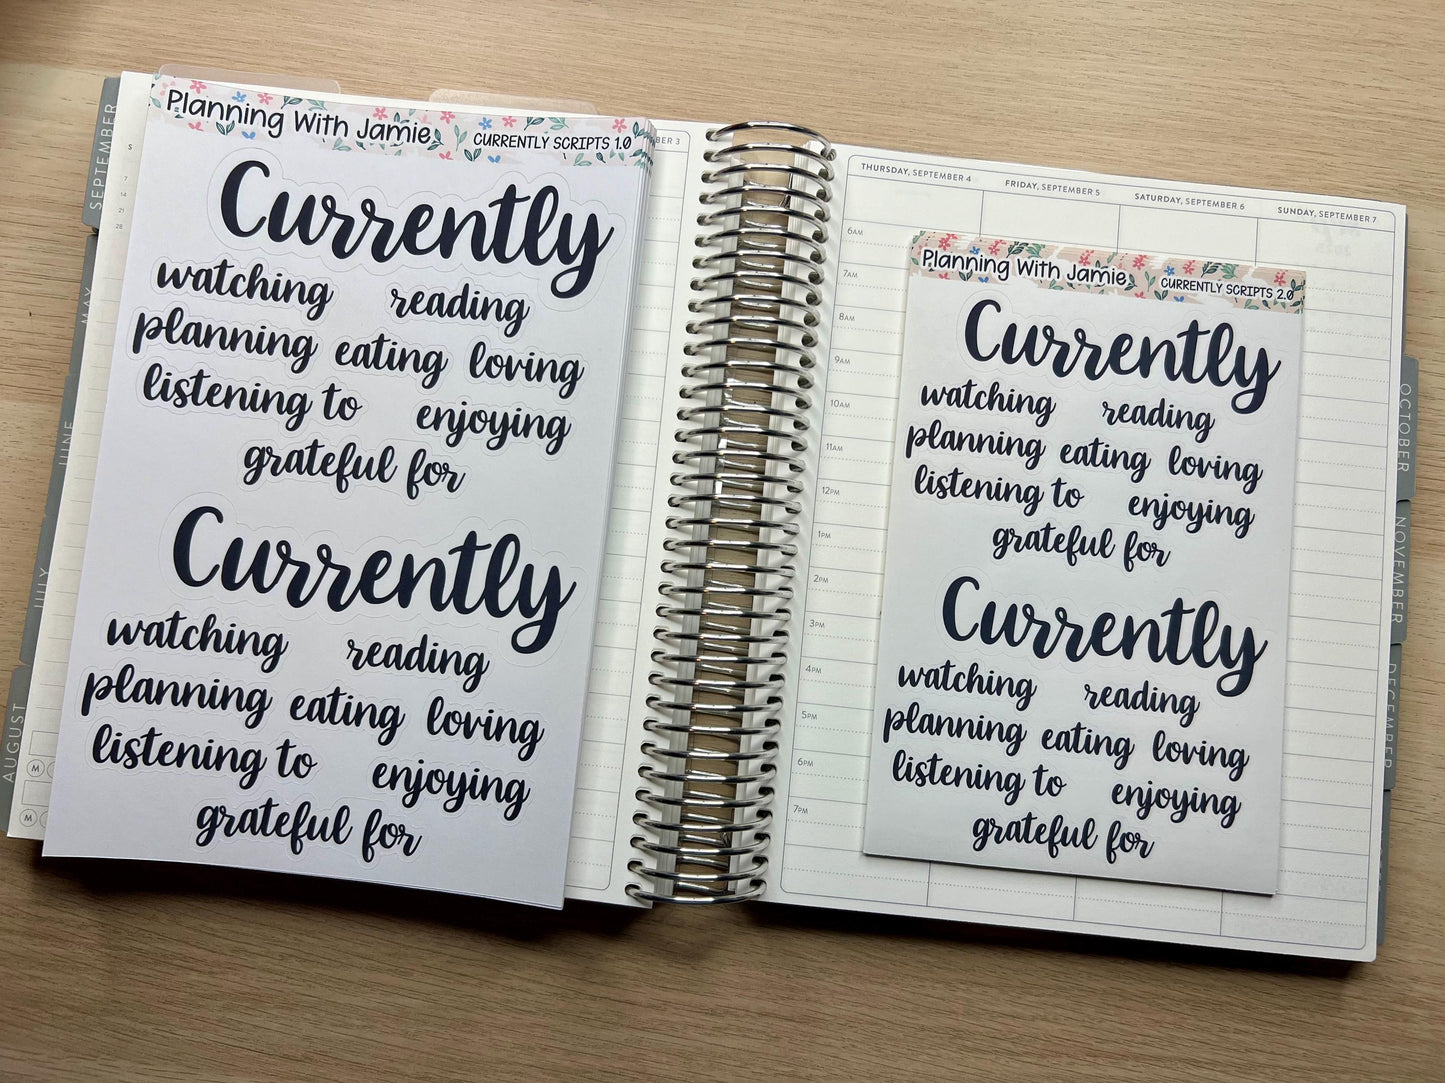 Planning With Jamie
CURRENTLY SCRIPTS 1.0
Currently
watching reading
planning eating loving
listening to enjoying
grateful for
Currently
watching reading
planning eating loving
listening to enjoying
grateful for
SEPTEMBER
MAY
JUNE
JULY
AUGUST
S
7
14
21
28
M
M
THURSDAY, SEPTEMBER 4
FRIDAY, SEPTEMBER 5
SATURDAY, SEPTEMBER 6
SUNDAY, SEPTEMBER 7
6AM
7AM
8AM
9AM
10AM
11AM
12PM
1PM
2PM
3PM
4PM
5PM
6PM
7PM
Planning With Jamie
CURRENTLY SCRIPTS 2.0
Currently
watching reading
planning eating loving
listening to enjoying
grateful for
Currently
watching reading
planning eating loving
listening to enjoying
grateful for
OCTOBER
NOVEMBER
DECEMBER